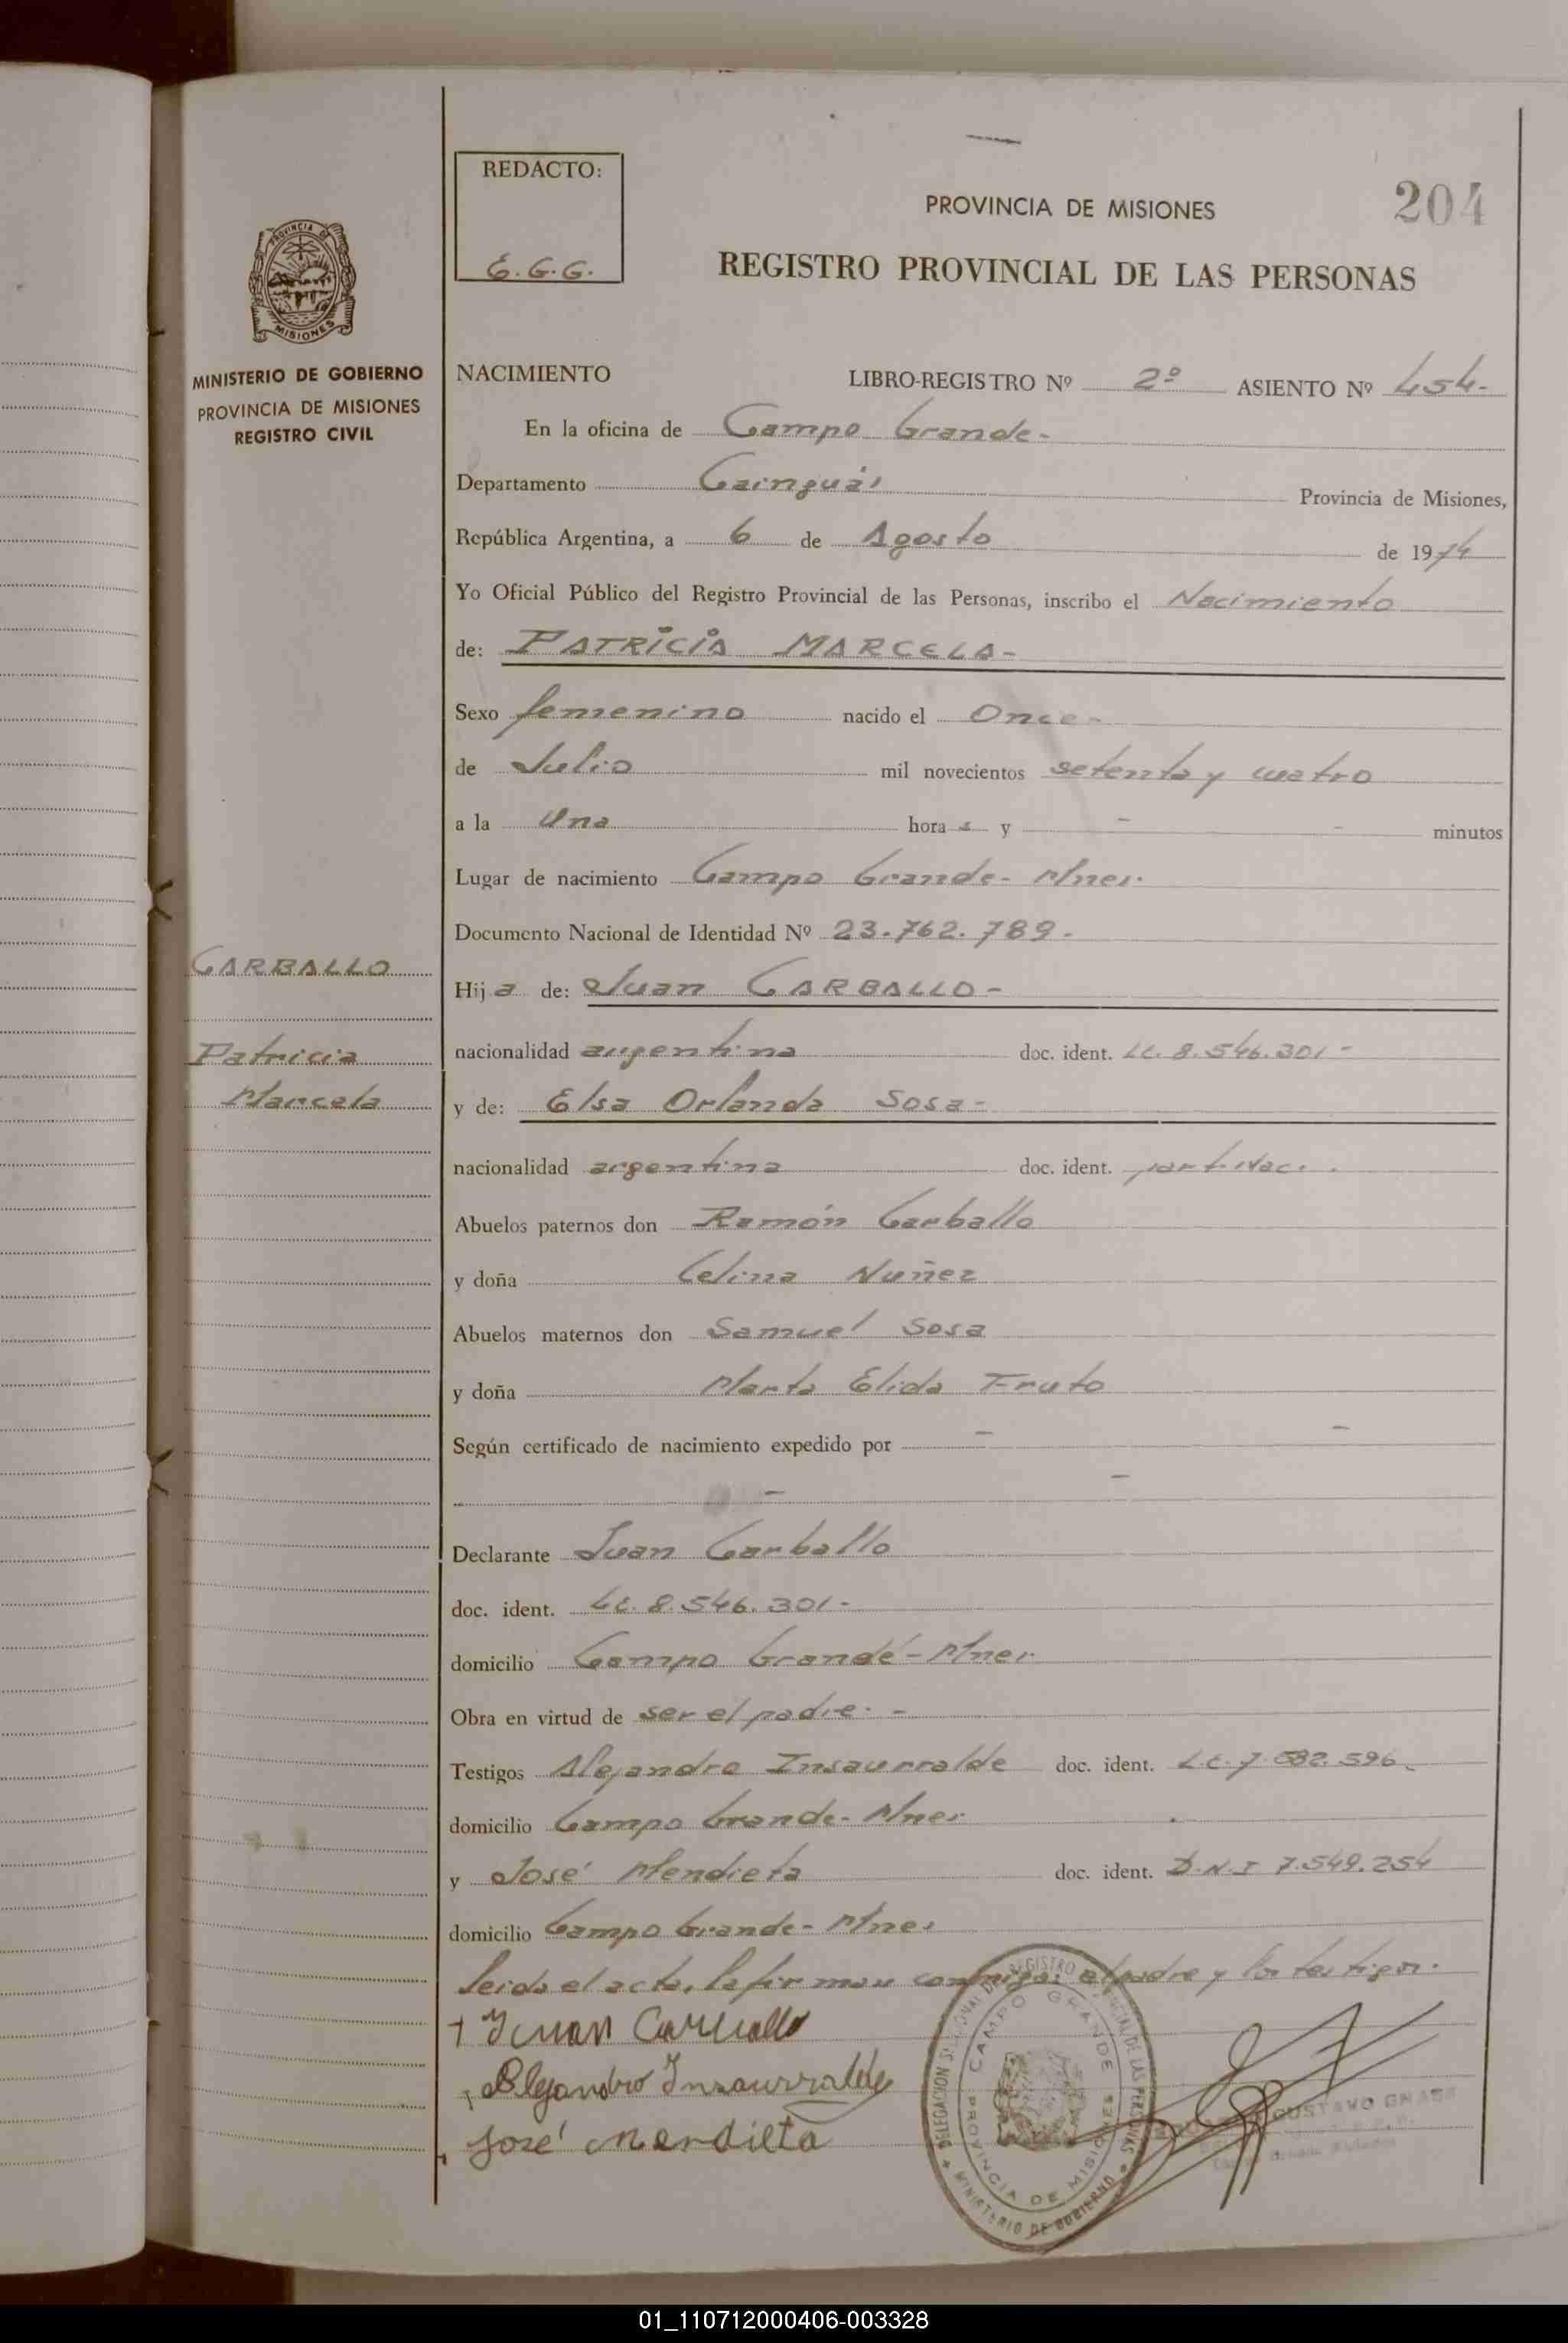 REDACTO:
E.G.G.
204
PROVINCIA DE MISIONES
REGISTRO PROVINCIAL DE LAS PERSONAS
PROVINCIA DE
MISIONES
MINISTERIO DE GOBIERNO
PROVINCIA DE MISIONES
REGISTRO CIVIL
NACIMIENTO LIBRO-REGISTRO Nº 2º ASIENTO Nº 454.-
En la oficina de Campo Grande-
Departamento Cainguás Provincia de Misiones,
República Argentina, a 6 de Agosto de 1974
Yo Oficial Público del Registro Provincial de las Personas, inscribo el Nacimiento
de: PATRICIA MARCELA-
Sexo femenino nacido el Once-
de Julio mil novecientos setenta y cuatro
a la Una hora s y - - minutos
Lugar de nacimiento Campo Grande- Mnes.
Documento Nacional de Identidad Nº 23.762.789.-
CARBALLO
Patricia
Marcela
Hija de: Juan CARBALLO-
nacionalidad argentina doc. ident. LE. 8.546.301-
y de: Elsa Orlanda Sosa-
nacionalidad argentina doc. ident. part. Nac.
Abuelos paternos don Ramón Carballo
y doña Celina Nuñez
Abuelos maternos don Samuel Sosa
y doña Marta Elida Fruto
Según certificado de nacimiento expedido por - -
- -
Declarante Juan Carballo
doc. ident. LE. 8.546.301-
domicilio Campo Grande-Mnes.
Obra en virtud de ser el padre. -
Testigos Alejandro Insaurralde doc. ident. L.E. 7.582.596.
domicilio Campo Grande- Mnes.
y José Mendieta doc. ident. D.N.I 7.549.254
domicilio Campo Grande- Mnes
leida el acta, la firman conmigo: el padre y los testigos.
Juan Carballo
Alejandro Insaurralde
José Mendieta
DELEGACION REGISTRO PROVINCIAL DE LAS PERSONAS
MINISTERIO DE GOBIERNO
CAMPO GRANDE
PROVINCIA DE MISIONES
GUSTAVO
01_110712000406-003328